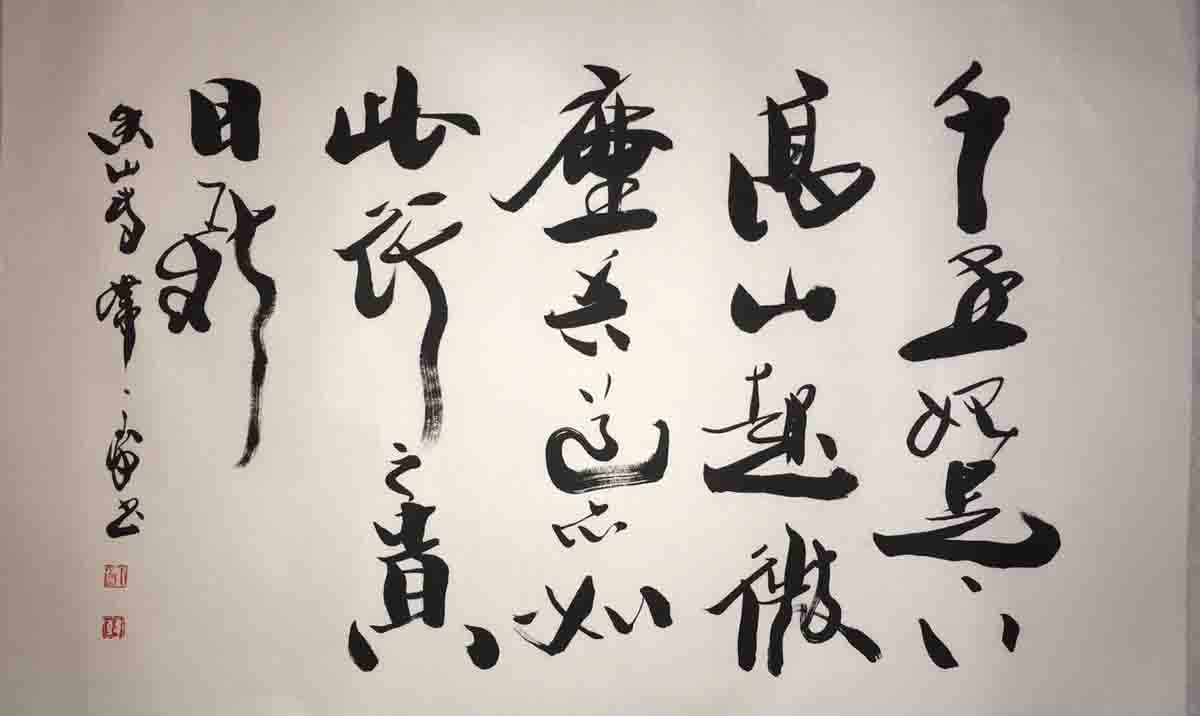 千里始足下
高山起微
塵吾道亦如
此行之貴
日新
书